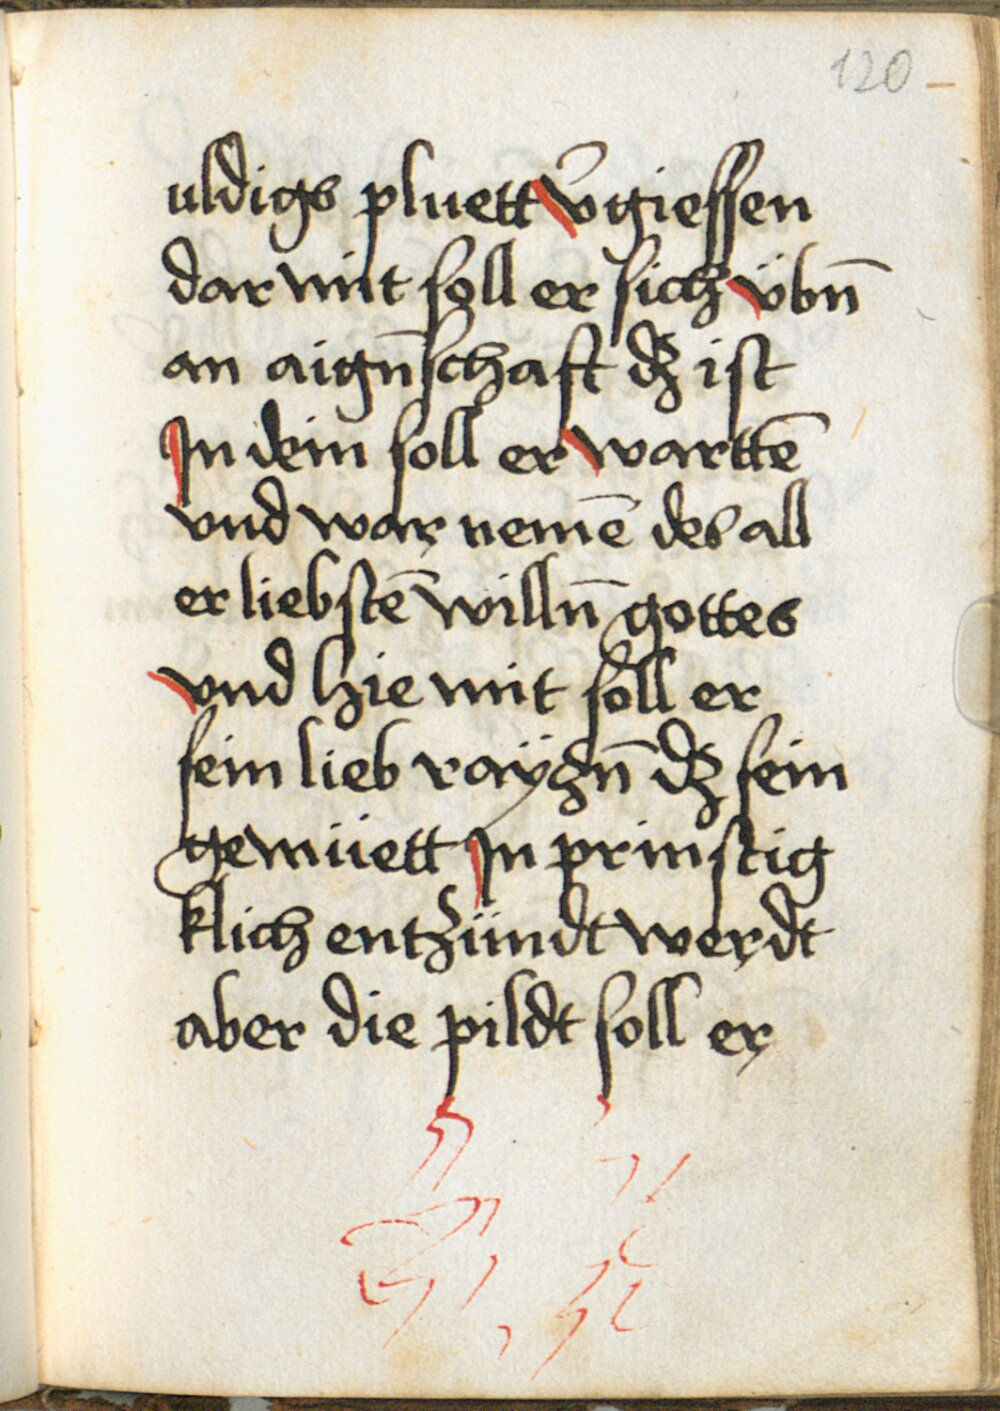 120
uldigs pluett v̄giessen
dar mit soll er sich übn̄
an aign̄schaft dz ist
In dem soll er wartē
vnd war nemē des all
er liebstē willn̄ gottes
vnd hie mit soll er
sein lieb raÿzn̄ dz sein
gemüett In prinstig
klich entzündt werdt
aber die pildt soll er